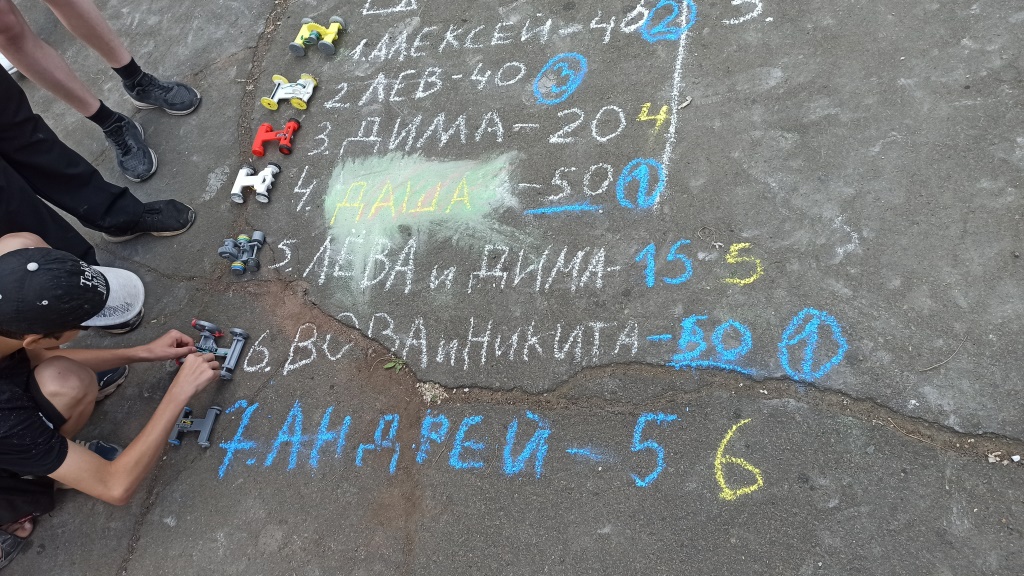 3.
1. АЛЕКСЕЙ-45 2
2 ЛЕВ-40 3
3. ДИМА-20 4
4. ДАША -50 1
5. ЛЁВА и ДИМА- 15 5
6. ВОВА и НИКИТА-50 1
7. АНДРЕЙ-5 6